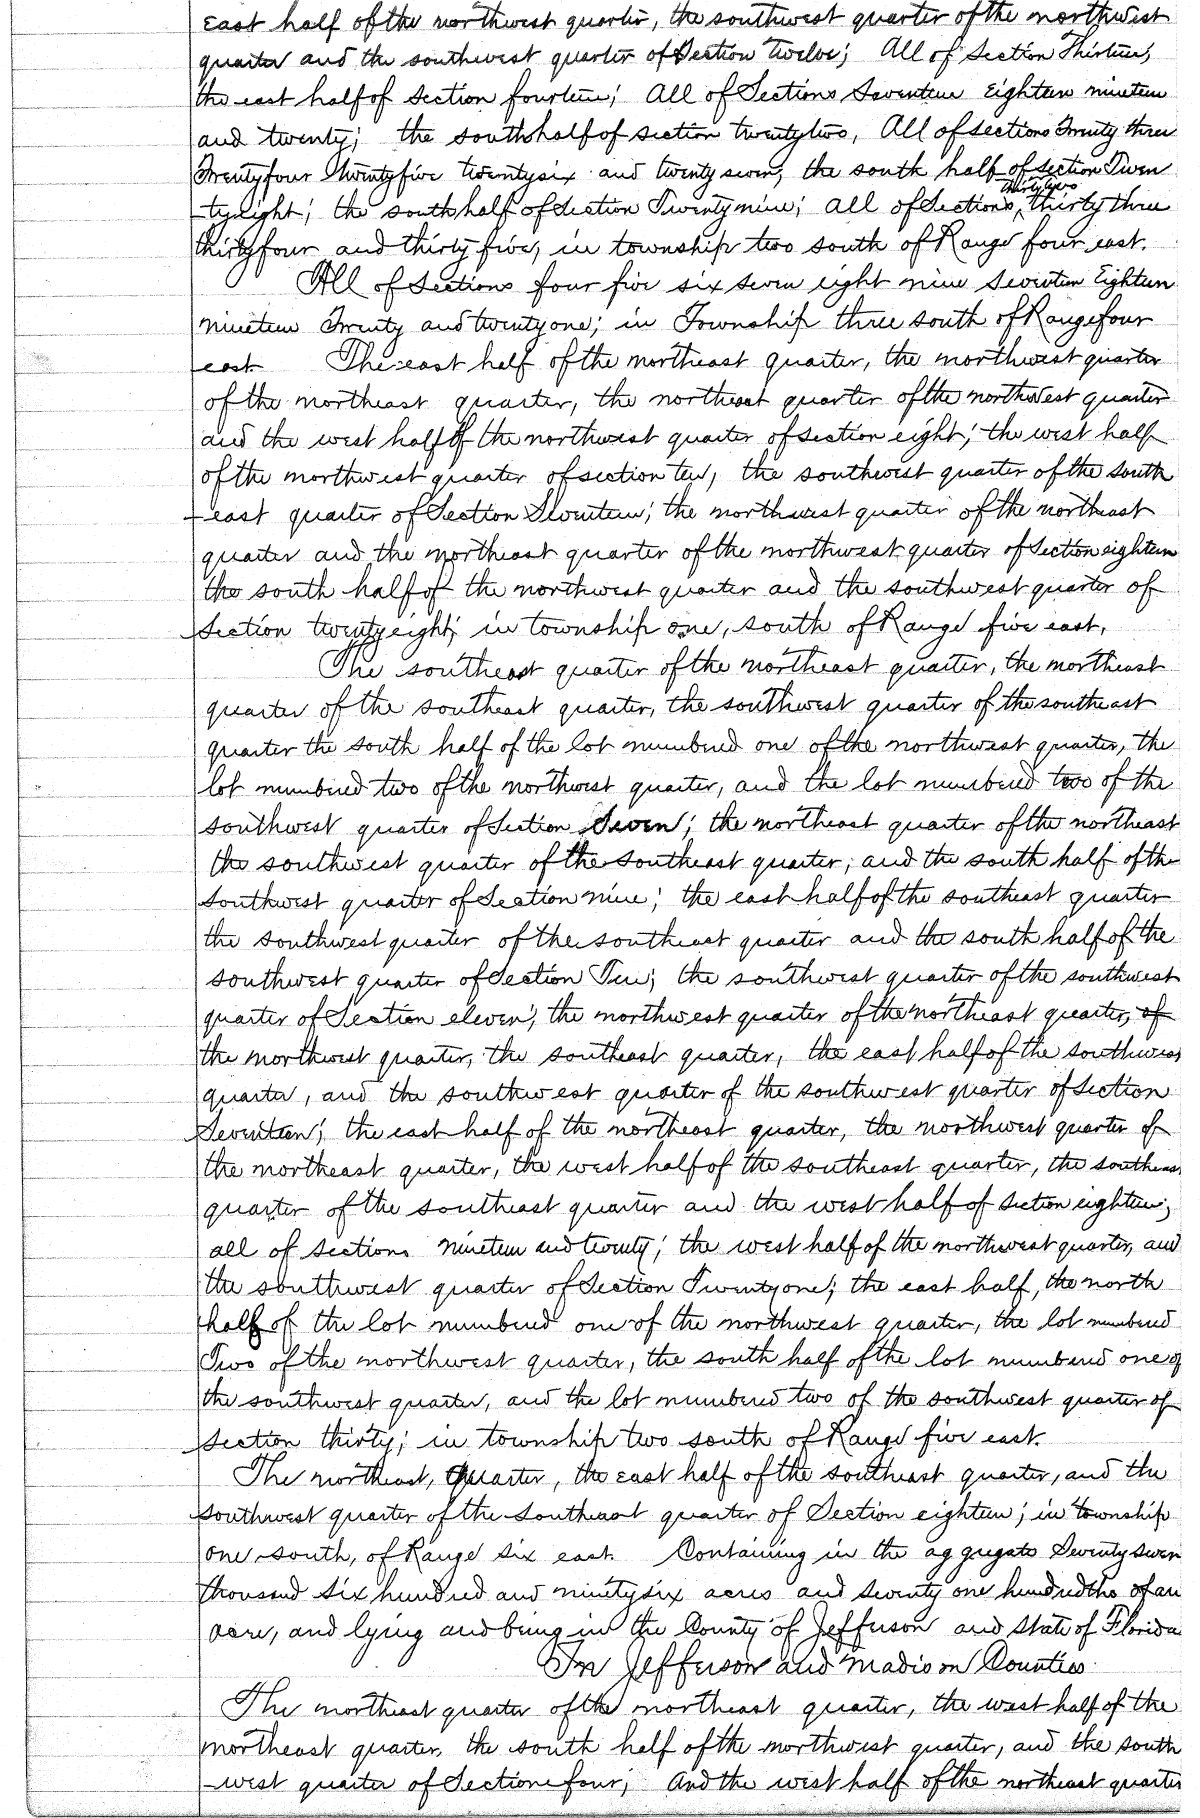 east half of the northwest quarter, the southwest quarter of the northwest
quarter and the southwest quarter of Section twelve; All of Section Thirteen,
the east half of Section fourteen; All of Sections Seventeen Eighteen nineteen
and twenty; the south half of section twenty two, All of sections Twenty three
Twenty four twenty five twenty six and twenty seven, the south half of section Twen
-ty eight; the south half of Section Twenty nine; all of Sections, thirty two thirty three
thirty four and thirty five, in township two south of Range four east.
All of Sections four five six seven eight nine Seventeen Eighteen
nineteen Twenty and twenty one; in Township three south of Range four
east. The east half of the northeast quarter, the northwest quarter
of the northeast quarter, the northeast quarter of the northwest quarter
and the west half of the northwest quarter of section eight; the west half
of the northwest quarter of section ten, the southwest quarter of the south
-east quarter of Section Seventeen; the northwest quarter of the northeast
quarter and the northeast quarter of the northwest quarter of Section eighteen
the south half of the northwest quarter and the southwest quarter of
Section twenty eight; in township one, south of Range five east.
The southeast quarter of the northeast quarter, the northeast
quarter of the southeast quarter, the southwest quarter of the southeast
quarter the south half of the lot numbered one of the northwest quarter, the
lot numbered two of the northwest quarter, and the lot numbered two of the
southwest quarter of Section Seven; the northeast quarter of the northeast
the southwest quarter of the southeast quarter, and the south half of the
southwest quarter of Section nine; the east half of the southeast quarter
the southwest quarter of the southeast quarter and the south half of the
southwest quarter of Section Ten; the southwest quarter of the southwest
quarter of Section eleven; the northwest quarter of the northeast quarter, of
the northwest quarter, the southeast quarter, the east half of the southwest
quarter, and the southwest quarter of the southwest quarter of Section
Seventeen; the east half of the northeast quarter, the northwest quarter of
the northeast quarter, the west half of the southeast quarter, the southeast
quarter of the southeast quarter and the west half of Section eighteen;
all of Sections nineteen and twenty; the west half of the northwest quarter, and
the southwest quarter of Section Twenty one; the east half, the north
half of the lot numbered one of the northwest quarter, the lot numbered
Two of the northwest quarter, the south half of the lot numbered one of
the southwest quarter, and the lot numbered two of the southwest quarter of
Section thirty; in township two south of Range five east.
The northeast, Quarter, the east half of the southeast quarter, and the
southwest quarter of the southeast quarter of Section eighteen; in township
one south, of Range six east. Containing in the aggregate Seventy seven
thousand six hundred and ninety six acres and seventy one hundredths of an
acre, and lying and being in the County of Jefferson and State of Florida
In Jefferson and Madison Counties.
The northeast quarter of the northeast quarter, the west half of the
northeast quarter, the south half of the northwest quarter, and the south
-west quarter of Section four; And the west half of the northeast quarter